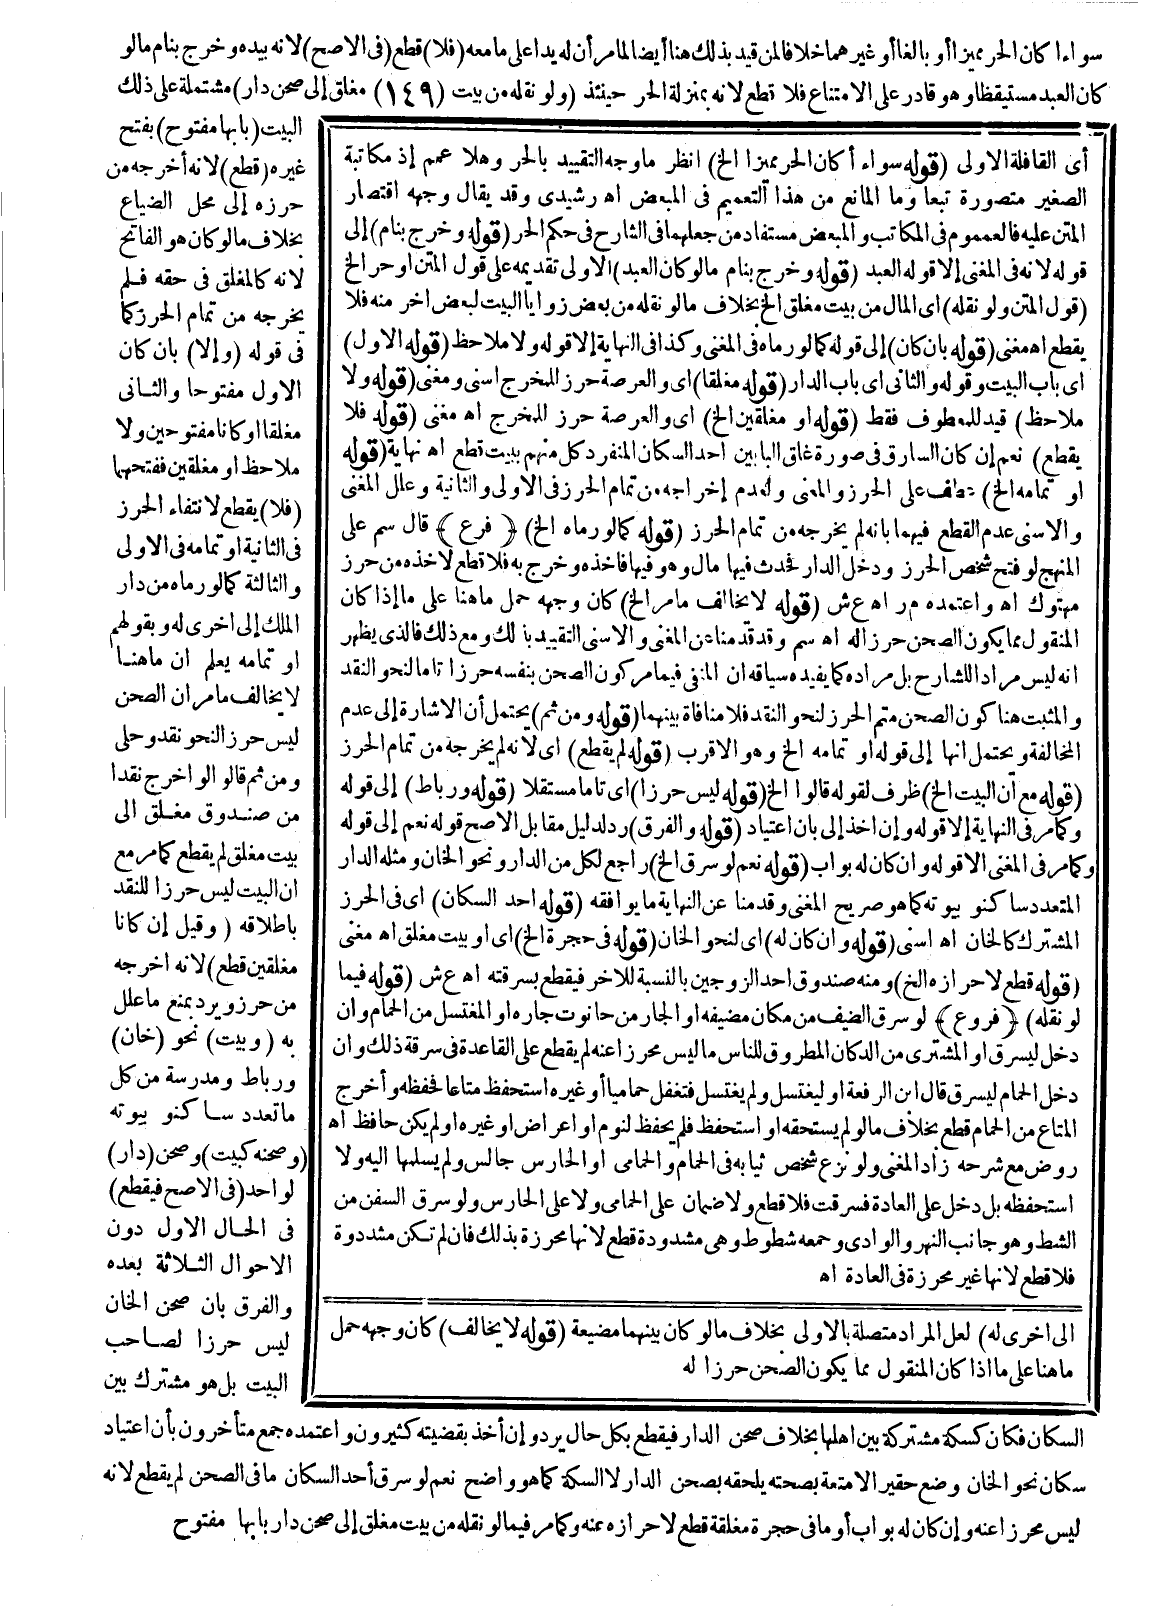 سواءا كان الحر مميزا أو بالغا أو غيرهما خلافا لمن قيد بذلك هنا أيضا لما مر أن له يدا على ما معه (فلا) قطع (فى الاصح) لانه بيده وخرج بنام مالو
كان العبد مستيقظا وهو قادر على الامتناع فلا قطع لانه بمنزلة الحر حينئذ (ولو نقله من بيت (١٤٩) مغلق إلى صحن دار) مشتملة على ذلك
البيت (بابها مفتوح) بفتح
غيره (قطع) لانه أخرجه من
حرزه إلى محل الضياع
بخلاف مالو كان هو الفاتح
لانه كالمغلق فى حقه فلم
يخرجه من تمام الحرز كما
فى قوله (وإلا) بان كان
الاول مفتوحا والثانى
مغلقا او كانا مفتوحين ولا
ملاحظ او مغلقين ففتحهما
(فلا) يقطع لانتفاء الحرز
فى الثانية او تمامه فى الاولى
والثالثة كما لو رماه من دار
الملك إلى اخرى له وبقولهم
او تمامه يعلم ان ماهنا
لا يخالف مامر ان الصحن
ليس حرز النحو نقد وحلى
ومن ثم قالوا لو اخرج نقدا
من صندوق مغلق الى
بيت مغلق لم يقطع كما مر مع
ان البيت ليس حرزا للنقد
باطلاقه (وقيل إن كانا
مغلقين قطع) لانه اخرجه
من حرز ويرد بمنع ماعلل
به (وبيت) نحو (خان)
ورباط ومدرسة من كل
ماتعدد ساكنو بيوته
(وصحنه كبيت) وصحن (دار)
لواحد (فى الاصح فيقطع)
فى الحال الاول دون
الاحوال الثلاثة بعده
والفرق بان صحن الخان
ليس حرزا لصاحب
البيت بل هو مشترك بين
السكان فكان كسكة مشتركة بين اهلها بخلاف صحن الدار فيقطع بكل حال يرد وإن أخذ بقضيته كثيرون واعتمده جمع متأخرون بأن اعتياد
سكان نحو الخان وضع حقير الامتعة بصحنه يلحقه بصحن الدار لا السكة كما هو واضح نعم لو سرق أحد السكان مافى الصحن لم يقطع لانه
ليس محرزا عنه وإن كان له بواب أو مافى حجرة مغلقة قطع لاحرازه عنه وكما مر فيما لو نقله من بيت مغلق إلى صحن دار بابها مفتوح
أى القافلة الاولى (قوله سواء أكان الحر مميزا الخ) انظر ماوجه التقييد بالحر وهلا عمم إذ مكاتبة
الصغير متصورة تبعا وما المانع من هذا التعميم فى المبعض اه رشيدى وقد يقال وجهه اقتصار
المتن عليه فالعموم فى المكاتب والمبعض مستفاد من جعلهما فى الشارح فى حكم الحر (قوله وخرج بنام) إلى
قوله لانه فى المغنى إلا قوله العبد (قوله وخرج بنام مالو كان العبد) الاولى تقديمه على قول المتن او حر الخ
(قول المتن ولو نقله) اى المال من بيت مغلق الخ بخلاف مالو نقله من بعض زوايا البيت لبعض اخر منه فلا
يقطع اه مغنى (قوله بان كان) إلى قوله كما لو رماه فى المغنى وكذا فى النهاية إلا قوله ولا ملاحظ (قوله الاول)
اى باب البيت وقوله والثانى اى باب الدار (قوله مغلقا) اى والعرصة حرز للمخرج اسنى ومغنى (قوله ولا
ملاحظ) قيد للمعطوف فقط (قوله او مغلقين الخ) اى والعرصة حرز للمخرج اه مغنى (قوله فلا
يقطع) نعم إن كان السارق فى صورة غلق البابين احد السكان المنفرد كل منهم ببيت قطع اه نهاية (قوله
او تمامه الخ) عطف على الحرز والمعنى ولعدم إخراجه من تمام الحرز فى الاولى والثانية وعلل المغنى
والاسنى عدم القطع فيهما بانه لم يخرجه من تمام الحرز (قوله كما لو رماه الخ) (فرع) قال سم على
المنهج لو فتح شخص الحرز ودخل الدار فحدث فيها مال وهو فيها فاخذه وخرج به فلا قطع لاخذه من حرز
مهتوك اه واعتمده م ر اه ع ش (قوله لا يخالف مامر الخ) كان وجهه حمل ماهنا على ما إذا كان
المنقول مما يكون الصحن حرزا له اه سم وقد قدمنا عن المغنى والاسنى التقييد بذلك ومع ذلك فالذى يظهر
انه ليس مراد الشارح بل مراده كما يفيده سياقه ان المنفى فيما مر كون الصحن بنفسه حرزا تاما لنحو النقد
والمثبت هنا كون الصحن متم الحرز لنحو النقد فلا منافاة بينهما (قوله ومن ثم) يحتمل أن الاشارة إلى عدم
المخالفة ويحتمل انها إلى قوله او تمامه الخ وهو الاقرب (قوله لم يقطع) اى لانه لم يخرجه من تمام الحرز
(قوله مع أن البيت الخ) ظرف لقوله قالوا الخ (قوله ليس حرزا) اى تاما مستقلا (قوله ورباط) إلى قوله
وكما مر فى النهاية إلا قوله وإن اخذ إلى بان اعتياد (قوله والفرق) رد لدليل مقابل الاصح قوله نعم إلى قوله
وكما مر فى المغنى الا قوله وان كان له بواب (قوله نعم لو سرق الخ) راجع لكل من الدار ونحو الخان ومثله الدار
المتعدد ساكنو بيوته كما هو صريح المغنى وقدمنا عن النهاية مايوافقه (قوله احد السكان) اى فى الحرز
المشترك كالخان اه اسنى (قوله وان كان له) اى لنحو الخان (قوله فى حجرة الخ) اى او بيت مغلق اه مغنى
(قوله قطع لاحرازه الخ) ومنه صندوق احد الزوجين بالنسبة للاخر فيقطع بسرقته اه ع ش (قوله فيما
لو نقله) (فروع) لو سرق الضيف من مكان مضيفه او الجار من حانوت جاره او المغتسل من الحمام وان
دخل ليسرق او المشترى من الدكان المطروق للناس ماليس محرزا عنه لم يقطع على القاعدة فى سرقة ذلك وان
دخل الحمام ليسرق قال ابن الرفعة او ليغتسل ولم يغتسل فتغفل حماميا أو غيره استحفظ متاعا فحفظه وأخرج
المتاع من الحمام قطع بخلاف مالو لم يستحقه او استحفظ فلم يحفظ لنوم او اعراض او غيره او لم يكن حافظ اه
روض مع شرحه زاد المغنى ولو نزع شخص ثيابه فى الحمام والحمامى او الحارس جالس ولم يسلمها اليه ولا
استحفظه بل دخل على العادة فسرقت فلا قطع ولا ضمان على الحمامى ولا على الحارس ولو سرق السفن من
الشط وهو جانب النهر والوادى وجمعه شطوط وهى مشدودة قطع لانها محرزة بذلك فان لم تكن مشدودة
فلا قطع لانها غير محرزة فى العادة اه
الى اخرى له) لعل المراد متصلة بالاولى بخلاف مالو كان بينهما مضيعة (قوله لا يخالف) كان وجهه حمل
ماهنا على ما اذا كان المنقول مما يكون الصحن حرزا له